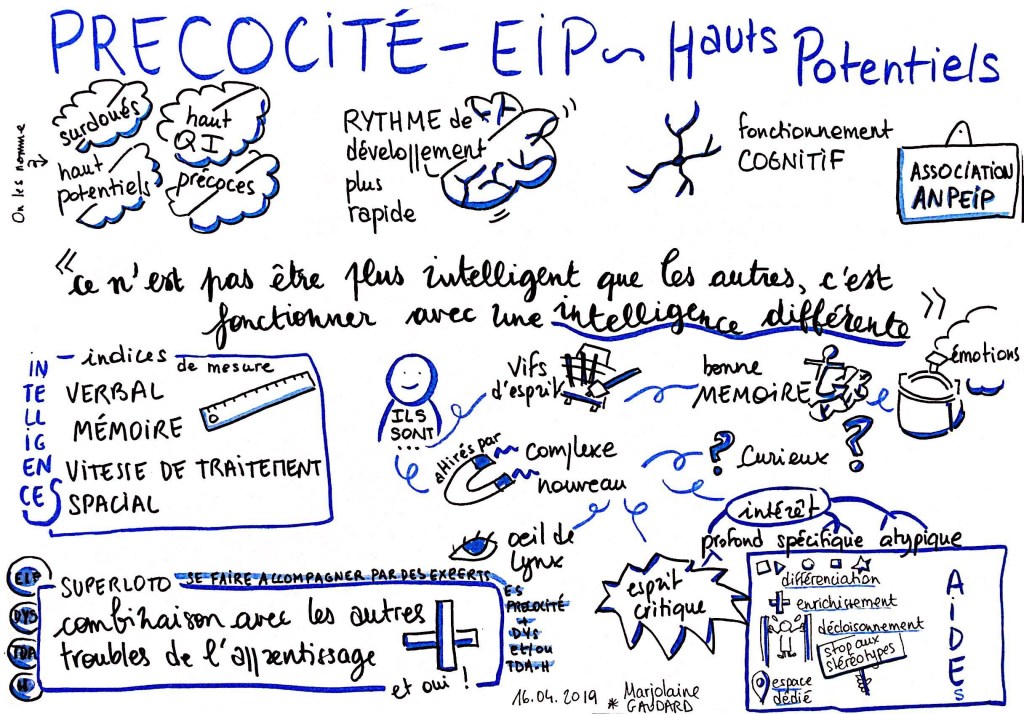 PRECOCITÉ - EiP ~ Hauts Potentiels
On les nomme
surdoués
haut
QI
haut
potentiels
précoces
RYTHME de
dévellopement
plus
rapide
fonctionnement
COGNITIF
ASSOCIATION
ANPEiP
« ce n'est pas être plus intelligent que les autres, c'est
fonctionner avec une intelligence différente »
INTELLIGENCES
indices
de mesure
VERBAL
MÉMOIRE
VITESSE DE TRAITEMENT
SPACIAL
ILS
SONT
...
vifs
d'esprit
bonne
MEMOIRE
émotions
attirés par
complexe
nouveau
? Curieux ?
oeil de
lynx
esprit
critique
intérêt
profond spécifique atypique
AiDES
différenciation
enrichissement
décloisonnement
stop aux
stéréotypes
espace
dédié
EIP
DYS
TDA
H
SUPERLOTO SE FAIRE ACCOMPAGNER PAR DES EXPERTS
ES
PRECOCITÉ
+
DYS
et/ou
TDA-H
combinaison avec les autres
troubles de l'apprentissage
et oui !
16.04.2019 * Marjolaine
GAUDARD